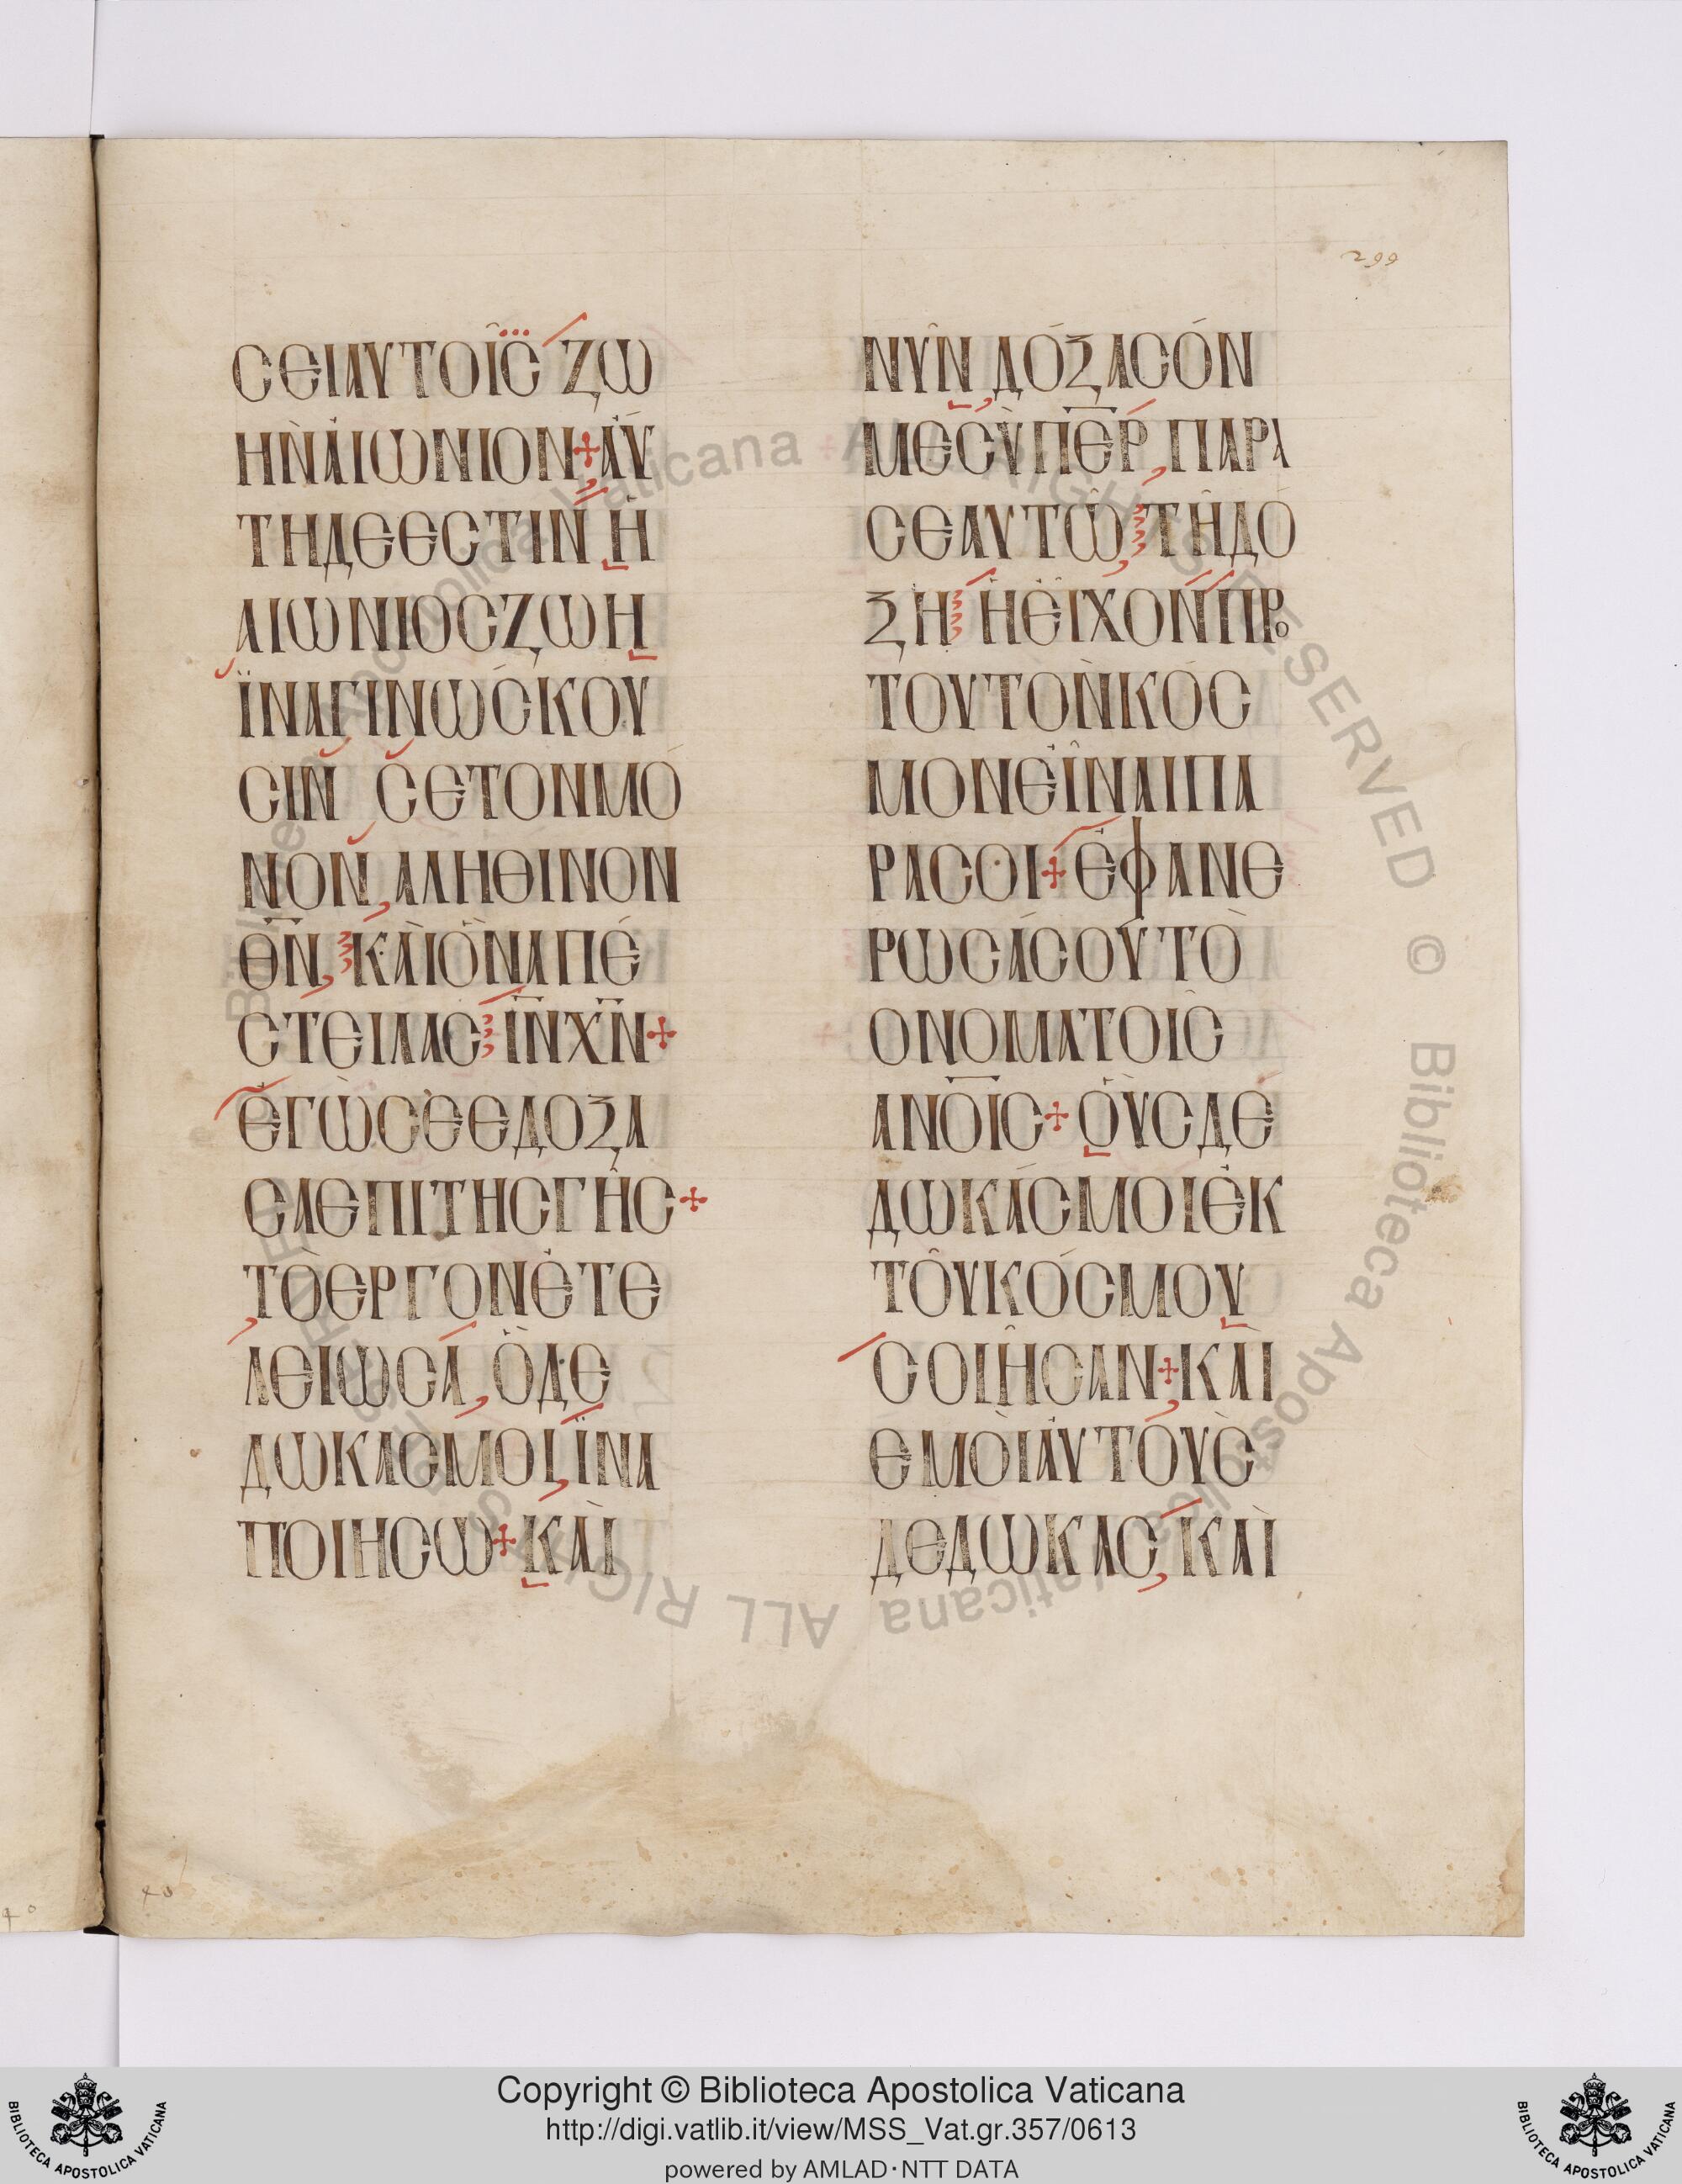 299
ϹΕΙΑΥΤΟΙ͂Ϲ ΖΩ
ΗΝ ΑΙΩΝΙΟΝ+ΑΥ
ΤΗΔΕΕϹΤΙΝ Η
ΑΙΩΝΙΟϹΖΩΗ
ΪΝΑΓΙΝΩϹΚΟΥ
ϹΙΝ ϹΕΤΟΝΜΟ
ΝΟΝ,ΑΛΗΘΙΝΟΝ
Θ̅Ν̅, ΚΑΙΟΝΑΠΕ
ϹΤΕΙΛΑϹ Ι̅Ν̅Χ̅Ν̅+
ΕΓΩϹΕΕΔΟΞΑ
ϹΑΕΠΙΤΗϹΓΗϹ+
ΤΟΕΡΓΟΝΕΤΕ
ΛΕΙΩϹΑ,ΟΔΕ
ΔΩΚΑϹΜΟΙ,ΪΝΑ
ΠΟΙΗϹΩ+ΚΑΙ
ΝΥΝ ΔΟΞΑϹΟΝ
ΜΕϹΥΠ̅Ε̅Ρ,ΠΑΡΑ
ϹΕΑΥΤΩ, ΤΗΔΟ
ΞΗ ΗΕΙΧΟΝΠΡΟ
ΤΟΥΤΟΝΚΟϹ
ΜΟΝΕΙΝΑΙΠΑ
ΡΑϹΟΙ+ΕΦΑΝΕ
ΡΩϹΑϹΟΥΤΟ
ΟΝΟΜΑΤΟΙϹ
ΑΝ̅Ο̅ΙϹ+ΟΥϹΔΕ
ΔΩΚΑϹΜΟΙΕΚ
ΤΟΥΚΟϹΜΟΥ
ϹΟΙΗϹΑΝ+ΚΑΙ
ΕΜΟΙΑΥΤΟΥϹ
ΔΕΔΩΚΑϹ,ΚΑΙ
Biblioteca Apostolica Vaticana ALL RIGHTS RESERVED © Biblioteca Apostolica Vaticana ALL RIGHTS RESERVED ©
Copyright © Biblioteca Apostolica Vaticana
http://digi.vatlib.it/view/MSS_Vat.gr.357/0613
powered by AMLAD·NTT DATA
BIBLIOTECA APOSTOLICA VATICANA
BIBLIOTECA APOSTOLICA VATICANA